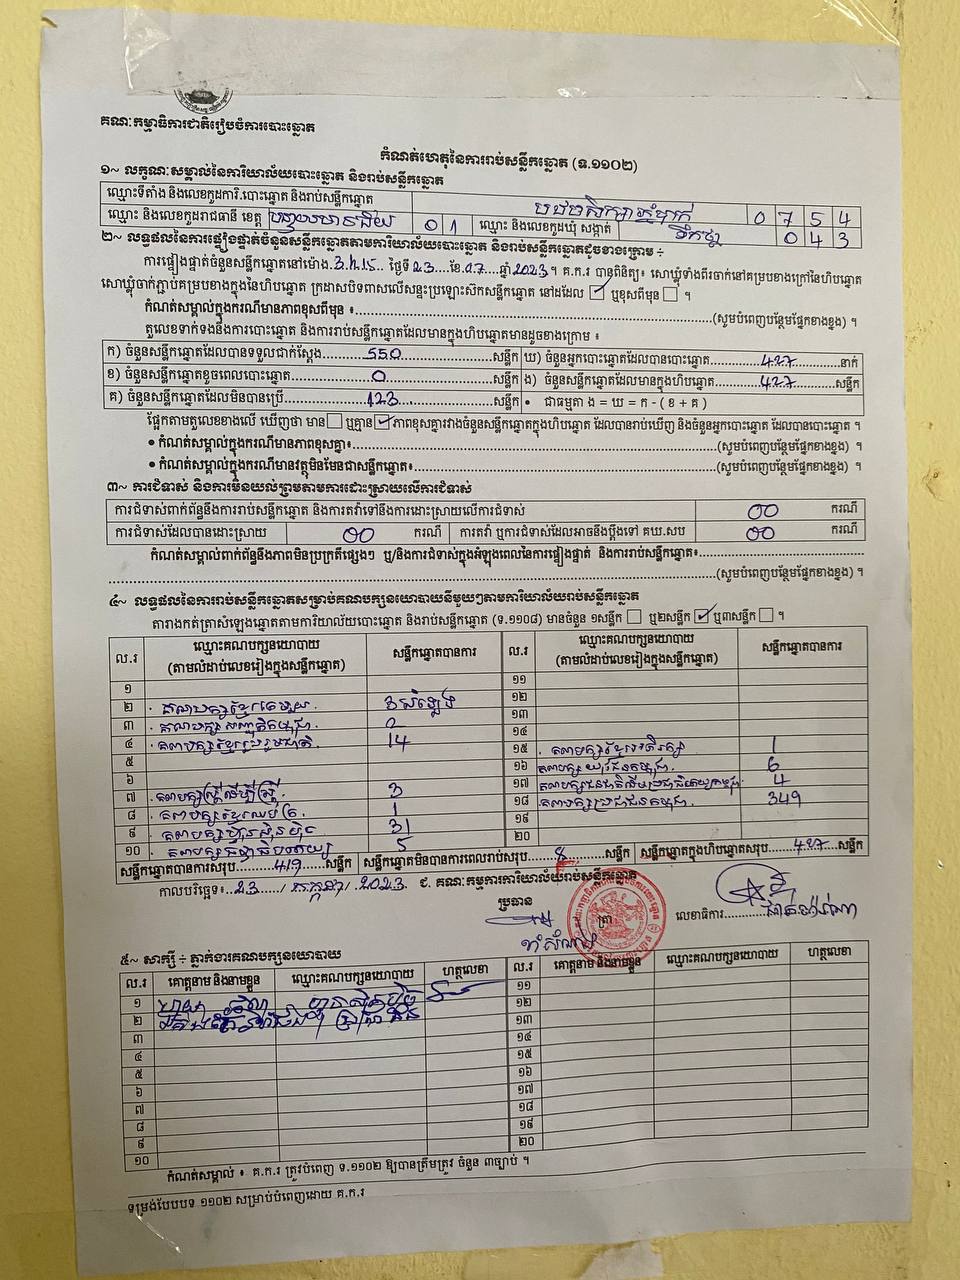 គណៈកម្មាធិការជាតិរៀបចំការបោះឆ្នោត
កំណត់ហេតុនៃការរាប់សន្លឹកឆ្នោត (ទ.១១០២)
១~ លក្ខណៈសម្គាល់នៃការិយាល័យបោះឆ្នោត និងរាប់សន្លឹកឆ្នោត
ឈ្មោះទីតាំង និងលេខកូដការិ.បោះឆ្នោត និងរាប់សន្លឹកឆ្នោត 0 7 5 4
ឈ្មោះ និងលេខកូដរាជធានី ខេត្ត បន្ទាយមានជ័យ 0 1 ឈ្មោះ និងលេខកូដឃុំ សង្កាត់ ទឹកថ្លា 0 4 3
២~ លទ្ធផលនៃការផ្ទៀងផ្ទាត់ចំនួនសន្លឹកឆ្នោតតាមការិយាល័យបោះឆ្នោត និងរាប់សន្លឹកឆ្នោតដូចខាងក្រោម ÷
ការផ្ទៀងផ្ទាត់ចំនួនសន្លឹកឆ្នោតនៅម៉ោង 3:h15 ថ្ងៃទី 23 ខែ 07 ឆ្នាំ 2023។ គ.ក.រ បានពិនិត្យ៖ សោឃ្លុំទាំងពីរចាក់នៅគម្របខាងក្រៅនៃហិបឆ្នោត
សោឃ្លុំចាក់ភ្ជាប់គម្របខាងក្នុងនៃហិបឆ្នោត ក្រដាសបិទពាសលើសន្ទះប្រឡោះស៊កសន្លឹកឆ្នោត នៅដដែល ✓ ឬខុសពីមុន ។
កំណត់សម្គាល់ក្នុងករណីមានភាពខុសពីមុន ៖ (សូមបំពេញបន្ថែមផ្នែកខាងខ្នង) ។
តួលេខទាក់ទងនឹងការបោះឆ្នោត និងការរាប់សន្លឹកឆ្នោតដែលមានក្នុងហិបឆ្នោតមានដូចខាងក្រោម ៖
ក) ចំនួនសន្លឹកឆ្នោតដែលបានទទួលជាក់ស្តែង 550 សន្លឹក ឃ) ចំនួនអ្នកបោះឆ្នោតដែលបានបោះឆ្នោត 427 នាក់
ខ) ចំនួនសន្លឹកឆ្នោតខូចពេលបោះឆ្នោត 0 សន្លឹក ង) ចំនួនសន្លឹកឆ្នោតដែលមានក្នុងហិបឆ្នោត 427 សន្លឹក
គ) ចំនួនសន្លឹកឆ្នោតដែលមិនបានប្រើ 123 សន្លឹក • ជាធម្មតា ង = ឃ = ក - ( ខ + គ )
ផ្អែកតាមតួលេខខាងលើ ឃើញថា មាន ឬគ្មាន ✓ ភាពខុសគ្នារវាងចំនួនសន្លឹកឆ្នោតក្នុងហិបឆ្នោត ដែលបានរាប់ឃើញ និងចំនួនអ្នកបោះឆ្នោត ដែលបានបោះឆ្នោត ។
• កំណត់សម្គាល់ក្នុងករណីមានភាពខុសគ្នា៖ (សូមបំពេញបន្ថែមផ្នែកខាងខ្នង) ។
• កំណត់សម្គាល់ក្នុងករណីមានវត្ថុមិនមែនជាសន្លឹកឆ្នោត៖ (សូមបំពេញបន្ថែមផ្នែកខាងខ្នង) ។
៣~ ការជំទាស់ និងការមិនយល់ព្រមតាមការដោះស្រាយលើការជំទាស់
ការជំទាស់ពាក់ព័ន្ធនឹងការរាប់សន្លឹកឆ្នោត និងការតវ៉ាទៅនឹងការដោះស្រាយលើការជំទាស់ 00 ករណី
ការជំទាស់ដែលបានដោះស្រាយ 00 ករណី ការតវ៉ា ឬការជំទាស់ដែលអាចនឹងប្តឹងទៅ គឃ.សប 00 ករណី
កំណត់សម្គាល់ពាក់ព័ន្ធនឹងភាពមិនប្រក្រតីផ្សេងៗ ឬ/និងការជំទាស់ក្នុងអំឡុងពេលនៃការផ្ទៀងផ្ទាត់ និងការរាប់សន្លឹកឆ្នោត៖
(សូមបំពេញបន្ថែមផ្នែកខាងខ្នង) ។
៤~ លទ្ធផលនៃការរាប់សន្លឹកឆ្នោតសម្រាប់គណបក្សនយោបាយនីមួយៗតាមការិយាល័យរាប់សន្លឹកឆ្នោត
តារាងកត់ត្រាសំឡេងឆ្នោតតាមការិយាល័យបោះឆ្នោត និងរាប់សន្លឹកឆ្នោត (ទ.១១០៨) មានចំនួន ១សន្លឹក ឬ២សន្លឹក ✓ ឬ៣សន្លឹក ។
ល.រ ឈ្មោះគណបក្សនយោបាយ សន្លឹកឆ្នោតបានការ ល.រ ឈ្មោះគណបក្សនយោបាយ សន្លឹកឆ្នោតបានការ
(តាមលំដាប់លេខរៀងក្នុងសន្លឹកឆ្នោត) (តាមលំដាប់លេខរៀងក្នុងសន្លឹកឆ្នោត)
១ ១១
២ ១២
៣ ១៣
៤ គណបក្សខ្មែររួបរួមជាតិ 14 ១៤
៥ ១៥ 1
៦ ១៦ គណបក្សយុវជនកម្ពុជា 6
៧ គណបក្សស្ត្រីដើម្បីស្ត្រី 3 ១៧ 4
៨ 1 ១៨ គណបក្សប្រជាជនកម្ពុជា 349
៩ គណបក្សហ្វ៊ុនស៊ិនប៉ិច 31 ១៩
១០ 5 ២០
សន្លឹកឆ្នោតបានការសរុប 419 សន្លឹក សន្លឹកឆ្នោតមិនបានការពេលរាប់សរុប 8 សន្លឹក សន្លឹកឆ្នោតក្នុងហិបឆ្នោតសរុប 427 សន្លឹក
កាលបរិច្ឆេទ៖ 23 / កក្កដា / 2023 ជ. គណៈកម្មការការិយាល័យរាប់សន្លឹកឆ្នោត
ប្រធាន ត្រា លេខាធិការ
៥~ សាក្សី ÷ ភ្នាក់ងារគណបក្សនយោបាយ
ល.រ គោត្តនាម និងនាមខ្លួន ឈ្មោះគណបក្សនយោបាយ ហត្ថលេខា ល.រ គោត្តនាម និងនាមខ្លួន ឈ្មោះគណបក្សនយោបាយ ហត្ថលេខា
១ ហ្វ៊ុនស៊ិនប៉ិច ១១
២ ១២
៣ ១៣
៤ ១៤
៥ ១៥
៦ ១៦
៧ ១៧
៨ ១៨
៩ ១៩
១០ ២០
កំណត់សម្គាល់ ៖ គ.ក.រ ត្រូវបំពេញ ទ.១១០២ ឱ្យបានត្រឹមត្រូវ ចំនួន ៣ច្បាប់ ។
ទម្រង់បែបបទ ១១០២ សម្រាប់បំពេញដោយ គ.ក.រ